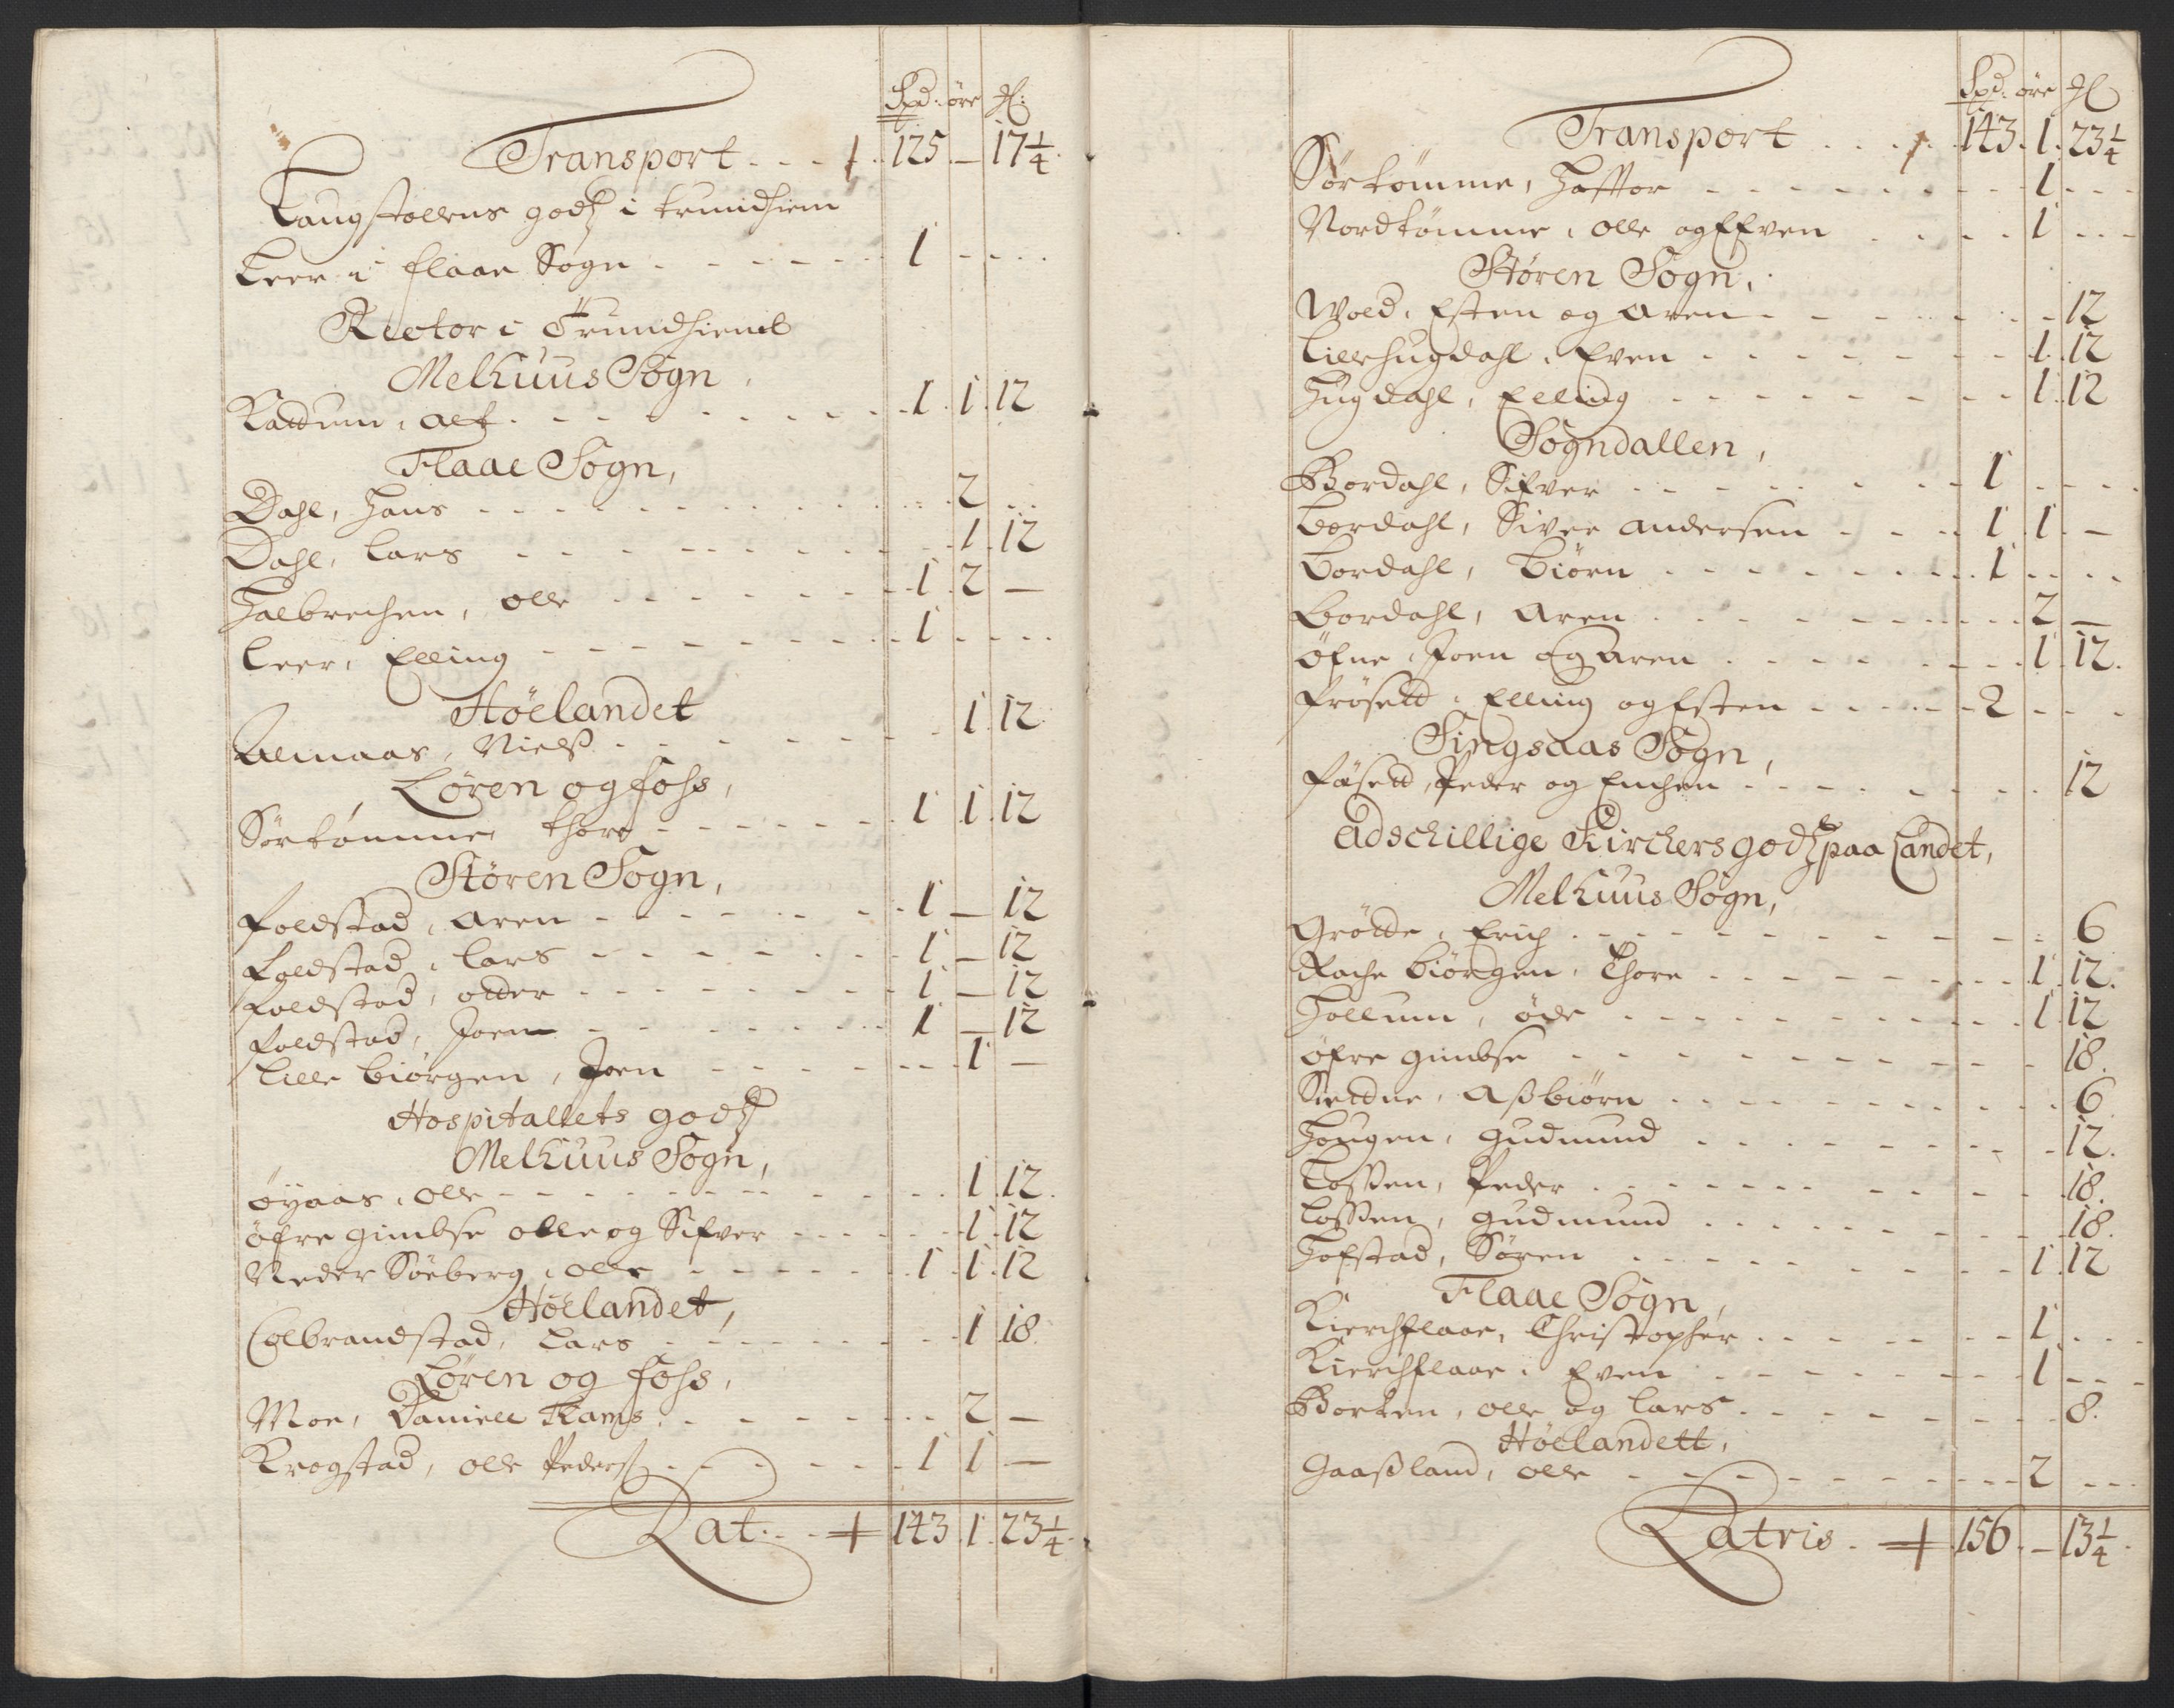 Spd: øre
Transport 125 — 17¼
Laugstollens godz i trundhiem
Leer i flaae Sogn 1
Rector i Trundhiemb
Melhuus Sogn
Kattum, Alf 1 1 12
Flaae Sogn,
Dahl, Hans 2
Dahl, Lars 1 12
Halbrechen, Olle 1 2 —
Leer, Elling 1
Høelandet
Almaas, Nielß 1 12
Løren og fohs,
Sørtømme, Thore 1 1 12
Støren Sogn,
Foldstad, Aren 1 — 12
Foldstad, Lars 1 — 12
Foldstad, Otter 1 — 12
Foldstad, Joen 1 — 12
Lille biørgen, Joen 1 —
Hospitallets godz
Melhuus Sogn,
Øyaas, Olle 1 12
Øfre gimbse Olle og Sifver 1 12
Neder Søeberg, Olle 1 1 12
Høelandet,
Colbrandstad, Lars 1 18
Løren og fohs,
Moe, Daniell Kams 2 —
Krogstad, Olle Pederß 1 1 —
Lat. 143 1 23¼
Spd. øre
Transport 143 1 23¼
Sørtømme, Haftor 1
Nordtømme, Olle og Efven 1
Støren Sogn,
Wold, Esten og Aren 12
Lillehugdahl, Even 1 12
Hugdahl, Elling 1 12
Sogndallen,
Bordahl, Sifver 1
Bordahl, Siver Andersen 1 1 —
Bordahl, Biørn 1
Bordahl, Aren 2 —
Øfne, Joen og Aren 1 12
Frøsett, Elling og Esten 2
Singsaas Sogn,
Føsett, Peder og 12
Adschillige Kirchers godz paa Landet,
Melhuus Sogn,
Grøtte, Erich 6
Rache biørgen, Thore 1 12
Hollum, øde 1 12
Øfre gimbse 18
Slettne, Aßbiørn 6
Hougen, Gudmund 12
Loßen, Peder 18
Loßen, Gudmund 18
Hofstad, Søren 1 12
Flaae Sogn,
Kierchflaae, Christopher 1
Kierchflaae, Even 1
Borten, Olle og Lars 8
Høelandett,
Gaaßland, Olle 2
Latris 156 — 13¼